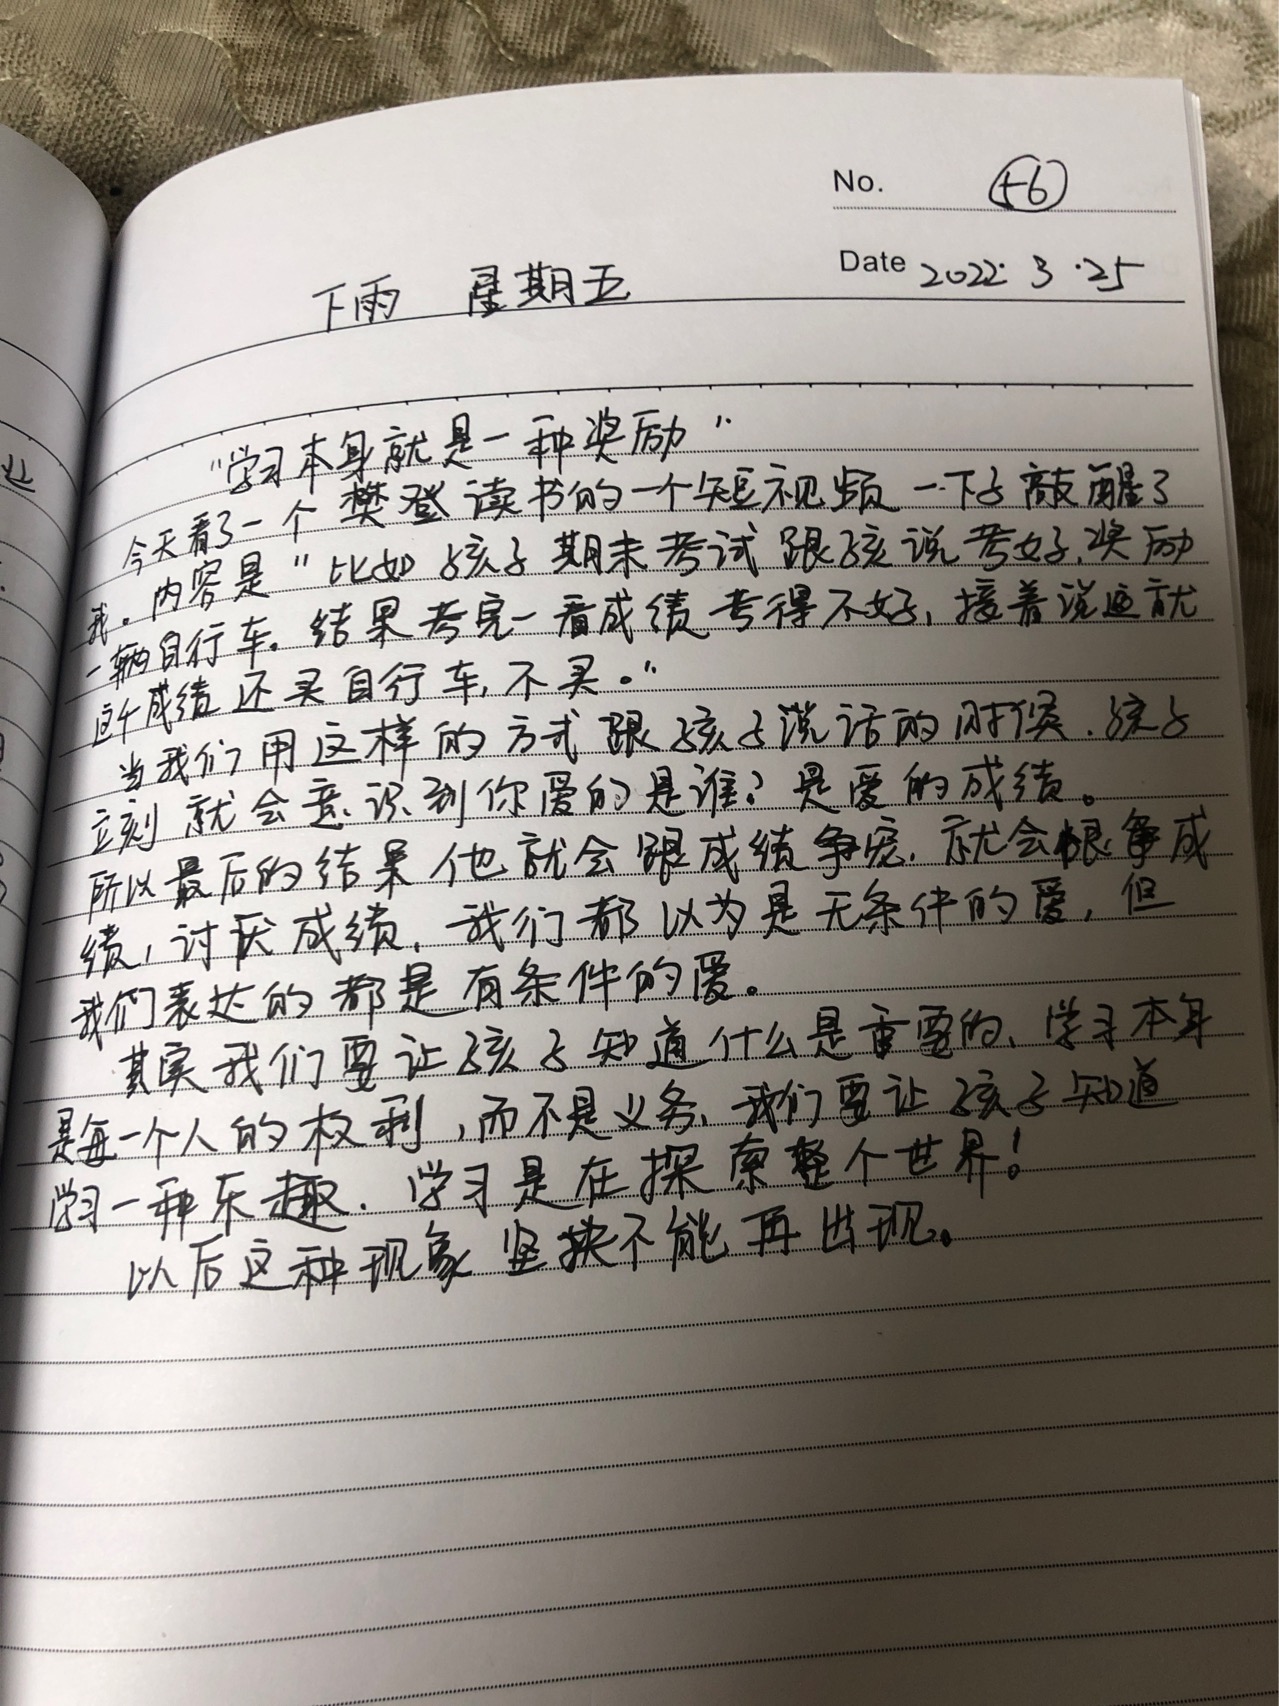 No. 56
Date 2022.3.25
下雨 星期五
“学习本身就是一种奖励”
今天看了一个樊登读书的一个短视频一下子敲醒了
我。内容是“比如孩子期末考试跟孩说考好,奖励
一辆自行车.结果考完一看成绩考得不好,接着说这就
这个成绩还买自行车,不买。”
当我们用这样的方式跟孩子说话的时候.孩子
立刻就会意识到你爱的是谁?是爱的成绩。
所以最后的结果他就会跟成绩争宠.就会恨争成
绩,讨厌成绩.我们都以为是无条件的爱,但
我们表达的都是有条件的爱。
其实我们要让孩子知道什么是重要的、学习本身
是每一个人的权利,而不是义务、我们要让孩子知道
学习一种乐趣.学习是在探索整个世界!
以后这种现象坚抉不能再出现。